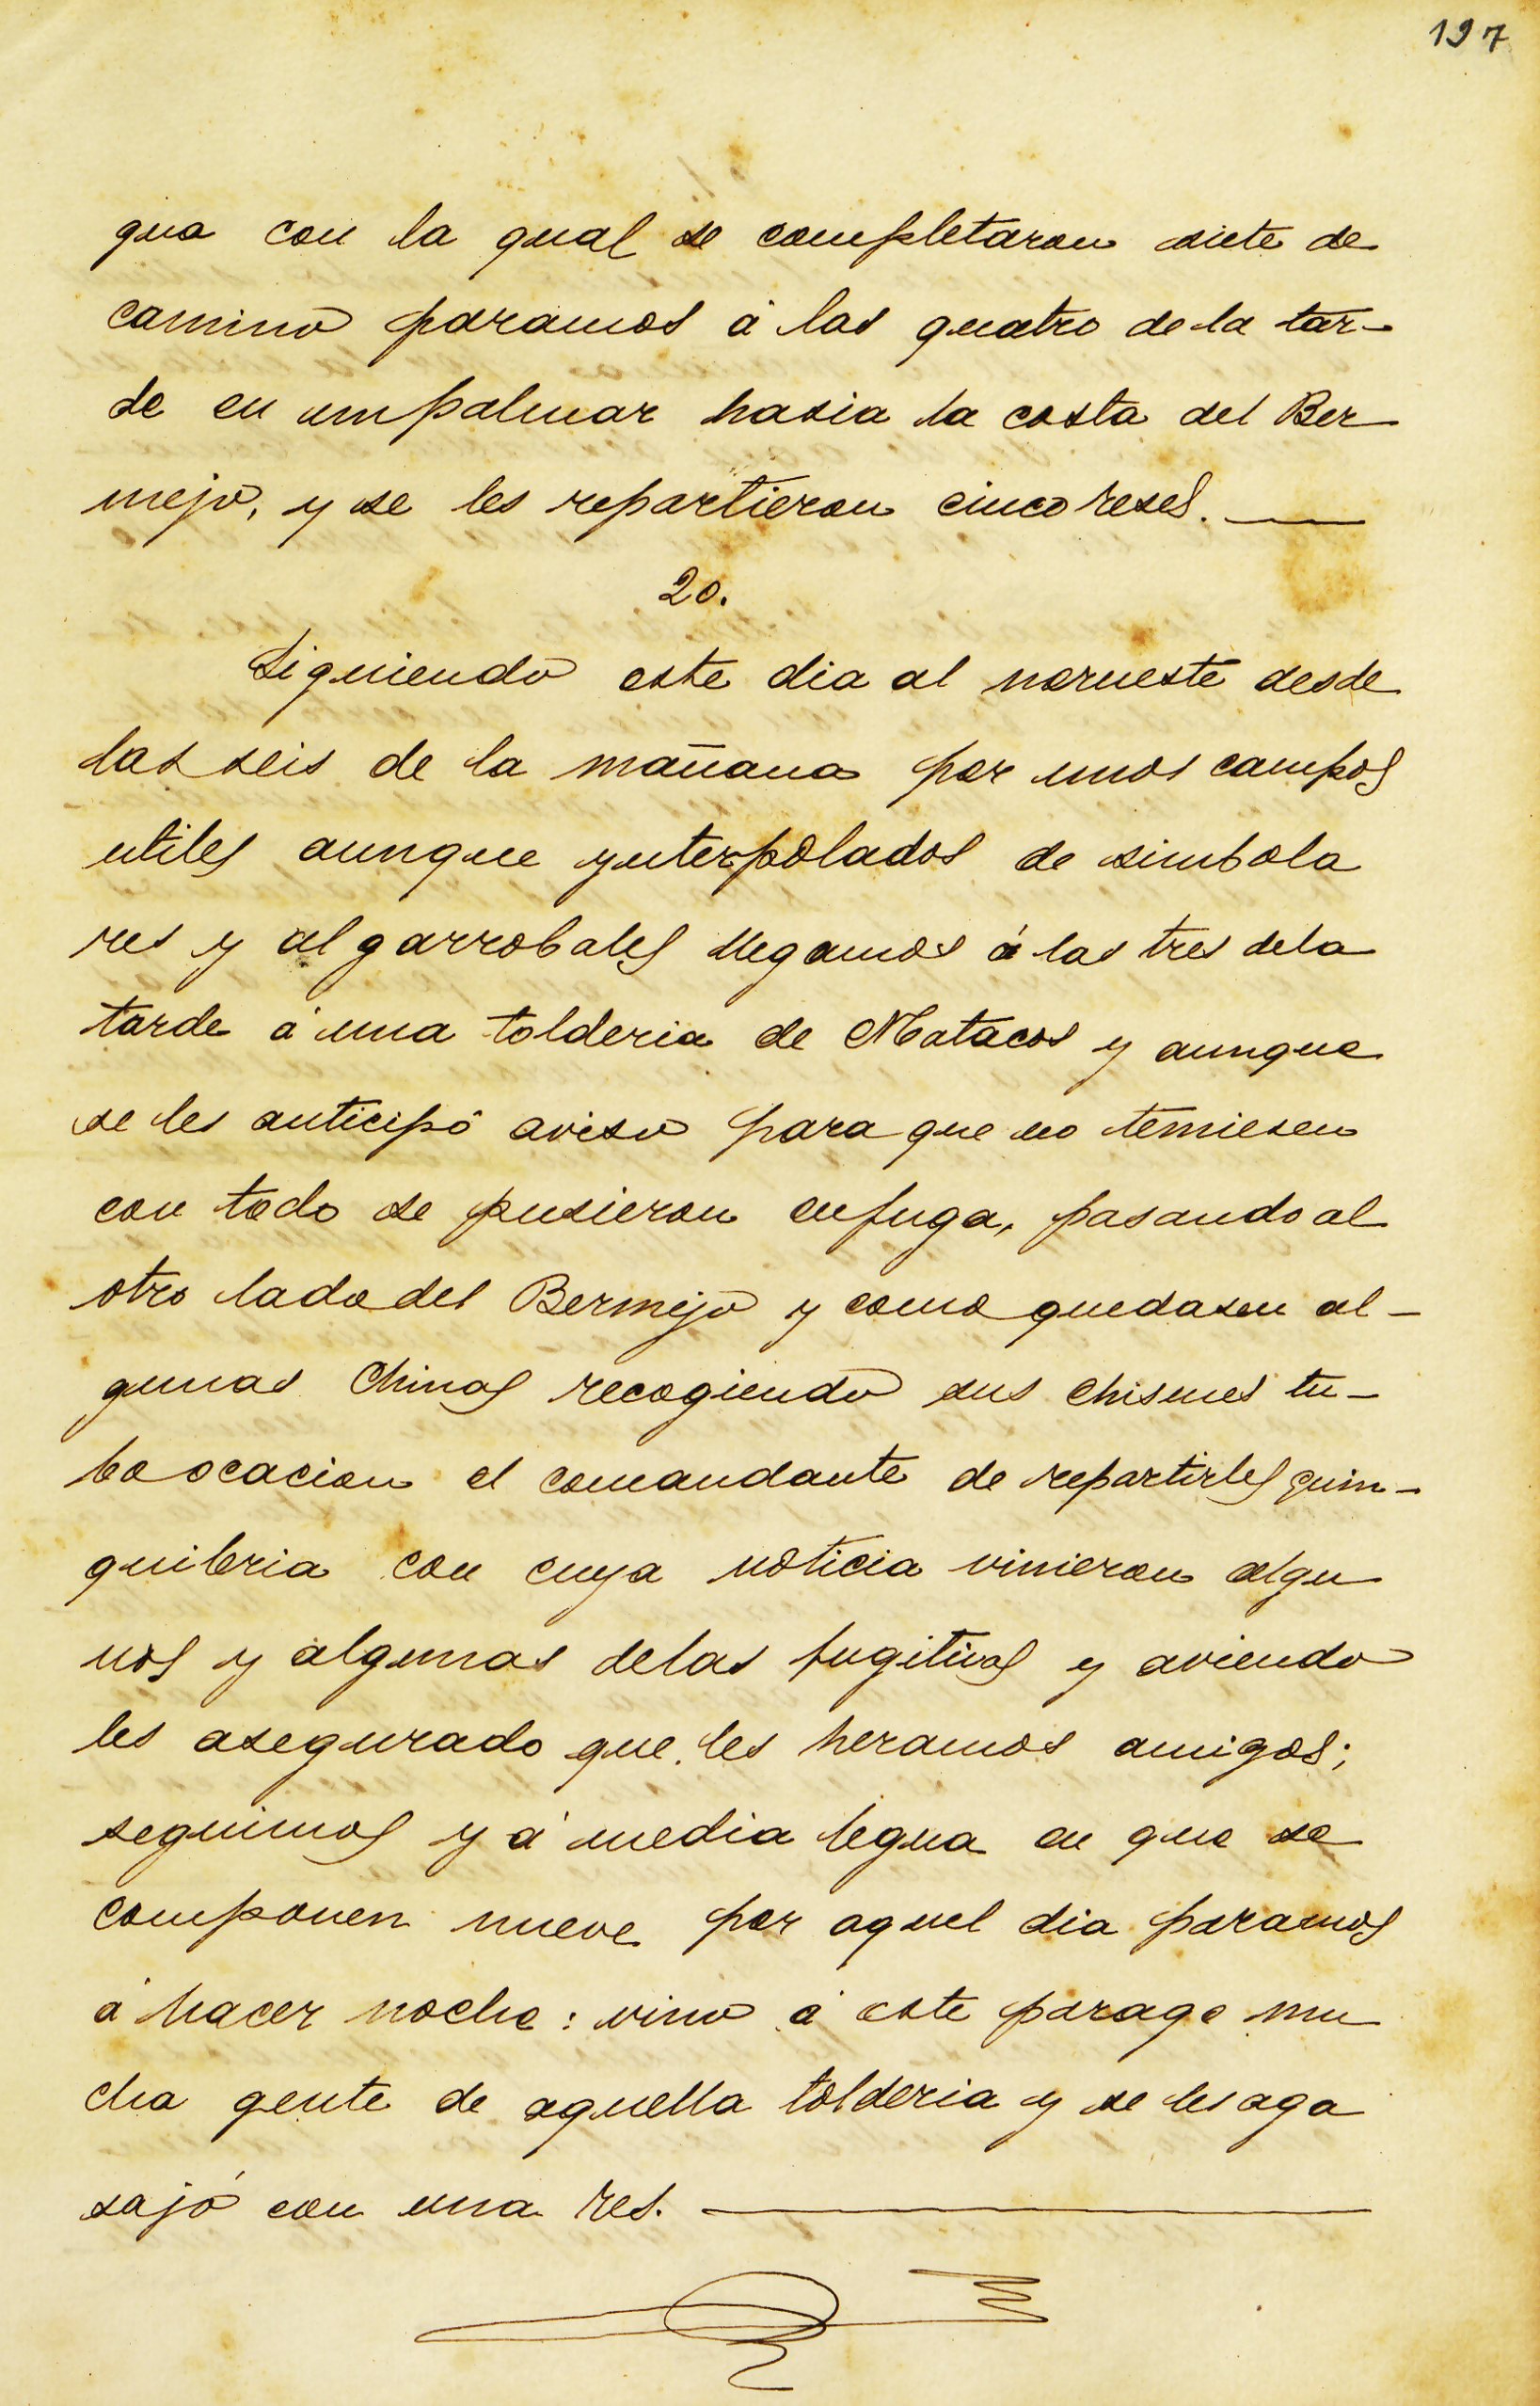 197
gua con la qual se completaron siete de
camino paramos á las quatro de la tar-
de en un palmar hasia la costa del Ber
mejo, y se les repartieron cinco reses.
20.
Siguiendo este dia al norueste desde
las seis de la mañana por unos campos
utiles aunque ynterpolados de simbola
res y algarrobales llegamos á las tres dela
tarde á una tolderia de Matacos y aunque
se les anticipó aviso para que no temiesen
con todo se pusieron en fuga, pasando al
otro lado del Bermejo y como quedasen al-
gunas Chinas recogiendo sus chismes tu-
bo ocacion el comandante de repartirles quin-
quileria con cuya noticia vinieron algu
nos y algunas delas fugitivas y aviendo
les asegurado que les heramos amigos;
seguimos y á media legua en que se
componen nueve por aquel dia paramos
á hacer noche: vino á este parage mu
cha gente de aquella tolderia y se les aga
sajó con una res.